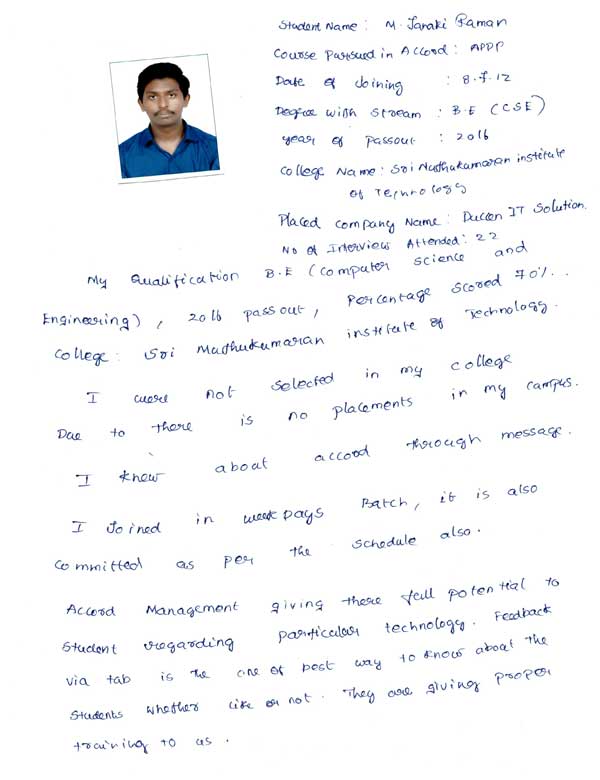 Student Name : M. Janaki Raman
Course Pursued in Accord : APDP
Date of Joining : 8.7.12
Degree with Stream : B.E (CSE)
year of Passout : 2016
College Name : Sri Muthukumaran institute
of Technology
Placed Company Name : Duccon IT Solution.
No of Interviews Attended : 22
My Qualification B.E (Computer Science and
Engineering), 2016 pass out, Percentage Scored 70%.
College : Sri Muthukumaran institute of Technology.
I were not selected in my college
Due to there is no placements in my campus.
I knew about accord through message.
I Joined in weekdays Batch, it is also
Committed as per the schedule also.
Accord Management giving there full potential to
student regarding particular technology. Feedback
via tab is the one of best way to know about the
students whether like or not. They are giving proper
training to us.